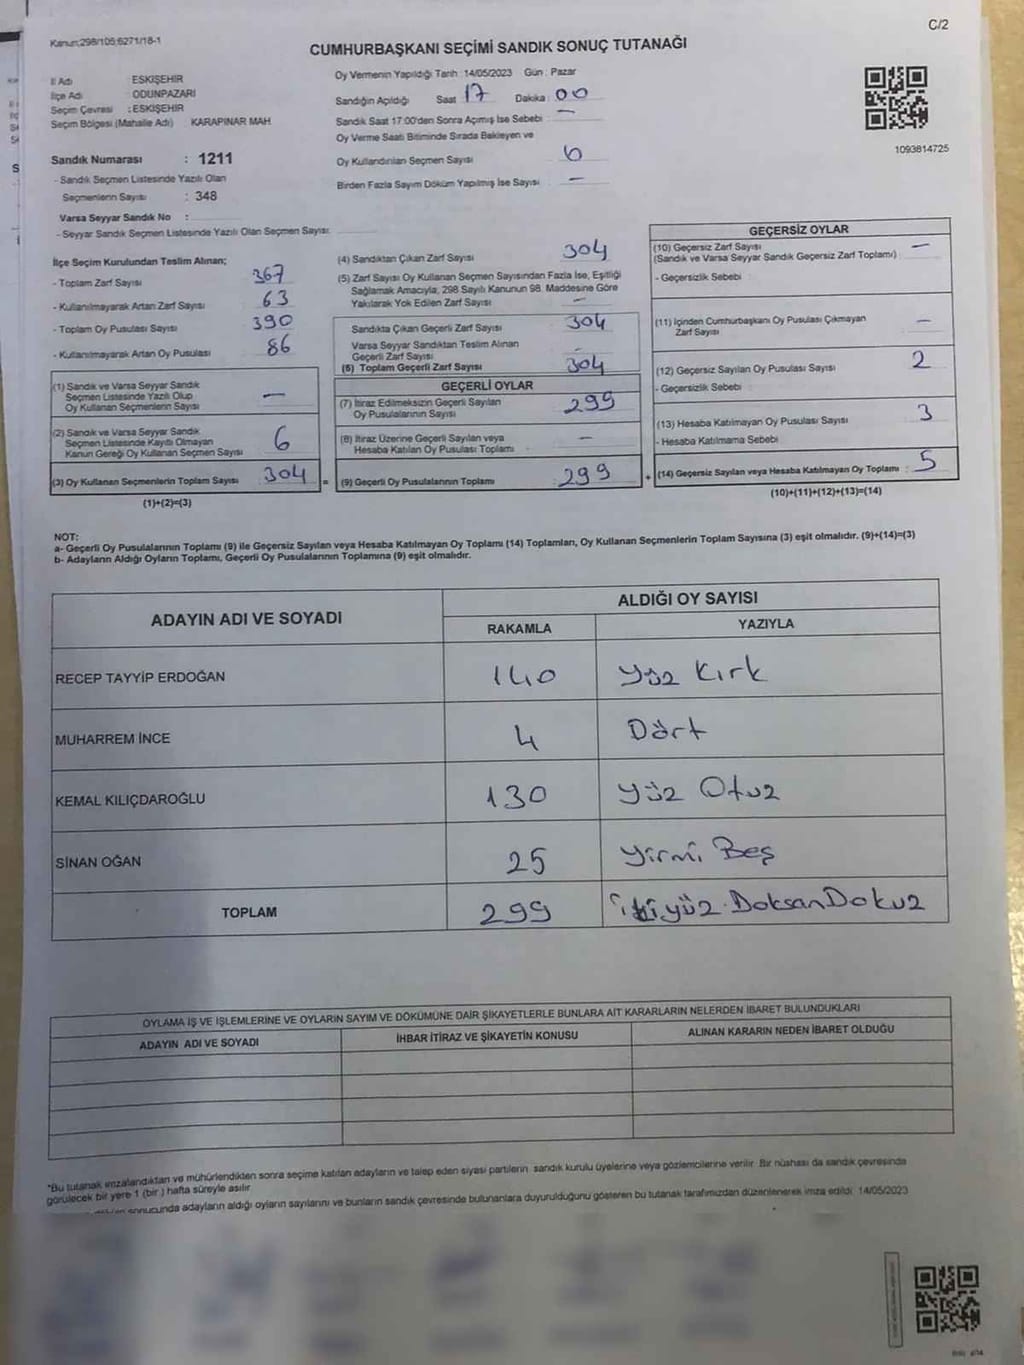 C/2
Kanun;298/105;6271/18-1
CUMHURBAŞKANI SEÇİMİ SANDIK SONUÇ TUTANAĞI
İl Adı ESKİŞEHİR
İlçe Adı ODUNPAZARI
Seçim Çevresi : ESKİŞEHİR
Seçim Bölgesi (Mahalle Adı) KARAPINAR MAH.
Sandık Numarası : 1211
- Sandık Seçmen Listesinde Yazılı Olan
Seçmenlerin Sayısı : 348
Varsa Seyyar Sandık No :
- Seyyar Sandık Seçmen Listesinde Yazılı Olan Seçmen Sayısı:
Oy Vermenin Yapıldığı Tarih :14/05/2023 Gün : Pazar
Sandığın Açıldığı Saat 17 Dakika 00
Sandık Saat 17:00'den Sonra Açılmış İse Sebebi : —
Oy Verme Saati Bitiminde Sırada Bekleyen ve
Oy Kullandırılan Seçmen Sayısı 6
Birden Fazla Sayım Döküm Yapılmış İse Sayısı : —
1093814725
İlçe Seçim Kurulundan Teslim Alınan;
- Toplam Zarf Sayısı 367
- Kullanılmayarak Artan Zarf Sayısı 63
- Toplam Oy Pusulası Sayısı 390
- Kullanılmayarak Artan Oy Pusulası 86
(1) Sandık ve Varsa Seyyar Sandık
Seçmen Listesinde Yazılı Olup
Oy Kullanan Seçmenlerin Sayısı —
(2) Sandık ve Varsa Seyyar Sandık
Seçmen Listesinde Kayıtlı Olmayan
Kanun Gereği Oy Kullanan Seçmen Sayısı 6
(3) Oy Kullanan Seçmenlerin Toplam Sayısı 304 =
(1)+(2)=(3)
(4) Sandıktan Çıkan Zarf Sayısı 304
(5) Zarf Sayısı Oy Kullanan Seçmen Sayısından Fazla İse, Eşitliği
Sağlamak Amacıyla, 298 Sayılı Kanunun 98. Maddesine Göre
Yakılarak Yok Edilen Zarf Sayısı —
Sandıkta Çıkan Geçerli Zarf Sayısı 304
Varsa Seyyar Sandıktan Teslim Alınan
Geçerli Zarf Sayısı —
(6) Toplam Geçerli Zarf Sayısı 304
GEÇERLİ OYLAR
(7) İtiraz Edilmeksizin Geçerli Sayılan
Oy Pusulalarının Sayısı 299
(8) İtiraz Üzerine Geçerli Sayılan veya
Hesaba Katılan Oy Pusulası Toplamı —
(9) Geçerli Oy Pusulalarının Toplamı 299 +
GEÇERSİZ OYLAR
(10) Geçersiz Zarf Sayısı —
(Sandık ve Varsa Seyyar Sandık Geçersiz Zarf Toplamı) :
- Geçersizlik Sebebi :
(11) İçinden Cumhurbaşkanı Oy Pusulası Çıkmayan
Zarf Sayısı —
(12) Geçersiz Sayılan Oy Pusulası Sayısı 2
- Geçersizlik Sebebi :
(13) Hesaba Katılmayan Oy Pusulası Sayısı 3
- Hesaba Katılmama Sebebi :
(14) Geçersiz Sayılan veya Hesaba Katılmayan Oy Toplamı : 5
(10)+(11)+(12)+(13)=(14)
NOT:
a- Geçerli Oy Pusulalarının Toplamı (9) ile Geçersiz Sayılan veya Hesaba Katılmayan Oy Toplamı (14) Toplamları, Oy Kullanan Seçmenlerin Toplam Sayısına (3) eşit olmalıdır. (9)+(14)=(3)
b- Adayların Aldığı Oyların Toplamı, Geçerli Oy Pusulalarının Toplamına (9) eşit olmalıdır.
ADAYIN ADI VE SOYADI ALDIĞI OY SAYISI
RAKAMLA YAZIYLA
RECEP TAYYİP ERDOĞAN 140 Yüz Kırk
MUHARREM İNCE 4 Dört
KEMAL KILIÇDAROĞLU 130 Yüz Otuz
SİNAN OĞAN 25 Yirmi Beş
TOPLAM 299 ikiyüz DoksanDokuz
OYLAMA İŞ VE İŞLEMLERİNE VE OYLARIN SAYIM VE DÖKÜMÜNE DAİR ŞİKAYETLERLE BUNLARA AİT KARARLARIN NELERDEN İBARET BULUNDUKLARI
ADAYIN ADI VE SOYADI İHBAR İTİRAZ VE ŞİKAYETİN KONUSU ALINAN KARARIN NEDEN İBARET OLDUĞU
*Bu tutanak imzalandıktan ve mühürlendikten sonra seçime katılan adayların ve talep eden siyasi partilerin sandık kurulu üyelerine veya gözlemcilerine verilir. Bir nüshası da sandık çevresinde
görülecek bir yere 1 (bir ) hafta süreyle asılır.
sonucunda adayların aldığı oyların sayılarını ve bunların sandık çevresinde bulunanlara duyurulduğunu gösteren bu tutanak tarafımızdan düzenlenerek imza edildi. 14/05/2023